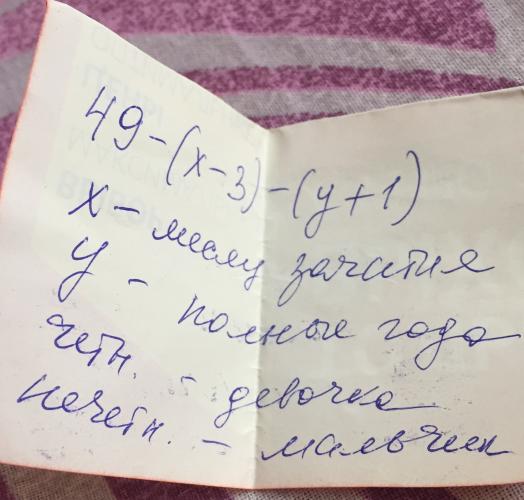 49-(x-3)-(y+1)
x - месяц зачатия
y - полные года
четн. - девочка
нечетн. - мальчик